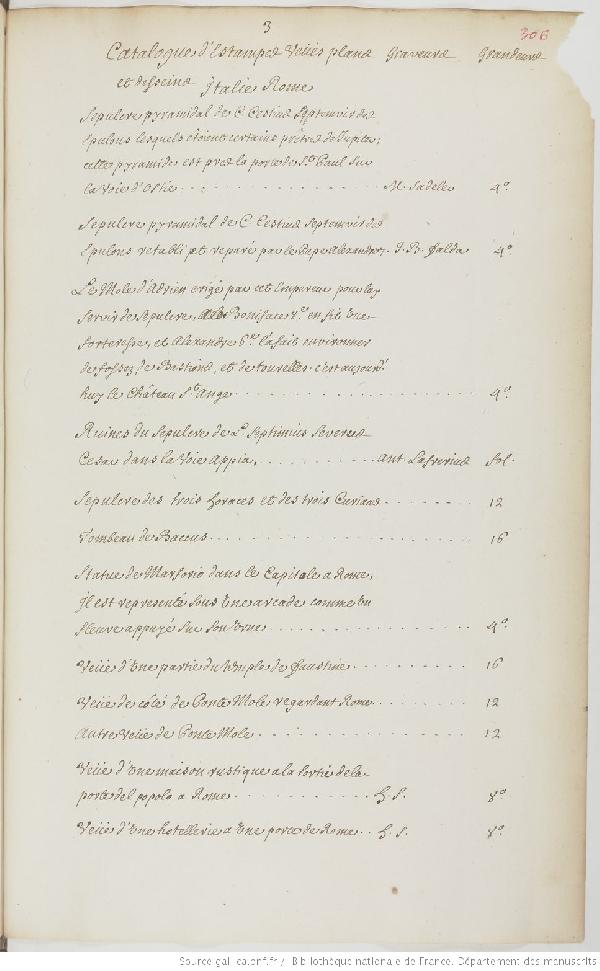 3
306
Catalogue d'Estampes Veües plans Graveurs Grandeurs
et desseins Italie Rome
Sepulcre pyramidal de C. Cestius Septemvir des
Epulons lesquels etoient certains prêtres de Jupiter,
cette pyramide est pres la porte de St. Paul sur
la voie d'Ostie . . . M. Sadeler 4º.
Sepulcre pyramidal de C. Cestius Septemvir des
Epulons retabli et reparé par le Pape Alexandre 7. J. B. Falda 4º.
Le Mole d'Adrien erigé par cet Empereur pour luy
servir de Sepulcre, Boniface en fit une
forteresse, et Alexandre 6e. l'a fait environner
de fossez, de Bastions, et de tourelles. c'est aujourd'
huy le Château St. Ange . . . 4º.
Ruines du Sepulcre de L. Septimius Severus
Cesar dans la Voie Appia, . . . Ant. Lafrerius fol.
Sepulcre des trois horaces et des trois Curiaces . . . 12
Tombeau de Baccus . . . 16
Statue de Marforio dans le Capitole a Rome,
Il est representé sous une arcade comme un
fleuve appuyé sur son Urne . . . 4º.
Veüe d'Une partie du temple de Faustine . . . 16
Veüe de côté de Ponte Mole regardant Rome . . . 12
Autre Veüe de Ponte Mole . . . 12
Veüe d'Une maison rustique a la sortie de la
porte del popolo a Rome . . . H. S. 8º
Veüe d'Une hotellerie a Une porte de Rome . . H. S. 8º.
Source gallica.bnf.fr / Bibliothèque nationale de France. Département des manuscrits